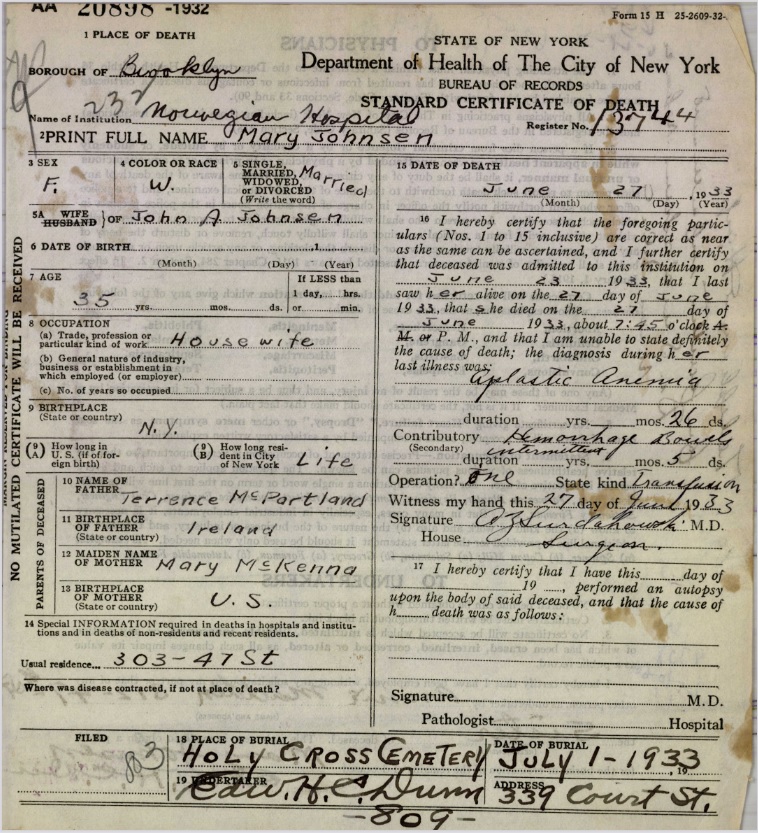 AA 20898 -1932
Form 15 H 25-2609-32-
1 PLACE OF DEATH
STATE OF NEW YORK
BOROUGH OF Brooklyn
Department of Health of The City of New York
BUREAU OF RECORDS
STANDARD CERTIFICATE OF DEATH
237
Name of Institution Norwegian Hospital
Register No. 13744
2 PRINT FULL NAME Mary Johnsen
3 SEX F.
4 COLOR OR RACE W.
5 SINGLE, MARRIED, WIDOWED, or DIVORCED (Write the word) Married
5A WIFE HUSBAND } OF John A Johnsen
6 DATE OF BIRTH 1
(Month) (Day) (Year)
7 AGE 35 yrs. mos. ds.
If LESS than 1 day, hrs. or min.
8 OCCUPATION
(a) Trade, profession or particular kind of work House wife
(b) General nature of industry, business or establishment in which employed (or employer)
(c) No. of years so occupied
9 BIRTHPLACE
(State or country) N.Y.
(9 A) How long in U. S. (if of foreign birth)
(9 B) How long resident in City of New York Life
PARENTS OF DECEASED
10 NAME OF FATHER Terrence McPartland
11 BIRTHPLACE OF FATHER (State or country) Ireland
12 MAIDEN NAME OF MOTHER Mary McKenna
13 BIRTHPLACE OF MOTHER (State or country) U.S.
14 Special INFORMATION required in deaths in hospitals and institutions and in deaths of non-residents and recent residents.
Usual residence 303-47 St
Where was disease contracted, if not at place of death?
NO MUTILATED CERTIFICATE WILL BE RECEIVED
15 DATE OF DEATH
June 27, 1933
(Month) (Day) (Year)
16 I hereby certify that the foregoing particulars (Nos. 1 to 15 inclusive) are correct as near
as the same can be ascertained, and I further certify
that deceased was admitted to this institution on
June 23 1933, that I last
saw her alive on the 27 day of June
1933, that she died on the 27 day of
June 1933, about 7:45 o'clock A.
M. or P. M., and that I am unable to state definitely
the cause of death; the diagnosis during her
last illness was:
Aplastic Anemia
duration yrs. mos. 26 ds.
Contributory Hemorrhage Bowels
(Secondary) intermittent
duration yrs. mos. 5 ds.
Operation? One State kind Transfusion
Witness my hand this 27 day of June 1933
Signature M.D.
House Surgeon.
17 I hereby certify that I have this day of
19 , performed an autopsy
upon the body of said deceased, and that the cause of
h death was as follows:
Signature M.D.
Pathologist Hospital
FILED
18 PLACE OF BURIAL Holy Cross Cemetery
DATE OF BURIAL July 1-1933, 19
19 UNDERTAKER Edw. H. C. Dunn
ADDRESS 339 Court St.
-809-